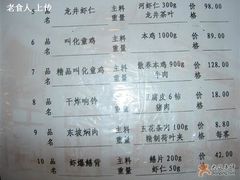 老食人 上传
5 品名 龙井虾仁 主料重量 河虾仁 300g 龙井茶叶 价格 98.00
6 品名 叫化童鸡 主料重量 本鸡 1000g 价格 89.00
7 品名 精品叫化童鸡 主料重量 散养本鸡 900g 牛肉 价格 128.00
8 品名 干炸响铃 主料重量 豆腐皮 6帖 猪肉 价格 18.00
9 品名 东坡焖肉 主料重量 五花条肉 100g 精制荷叶夹 价格
10 品名 虾爆鳝背 主料重量 鳝片 200g 虾仁 50g 价格 42.00